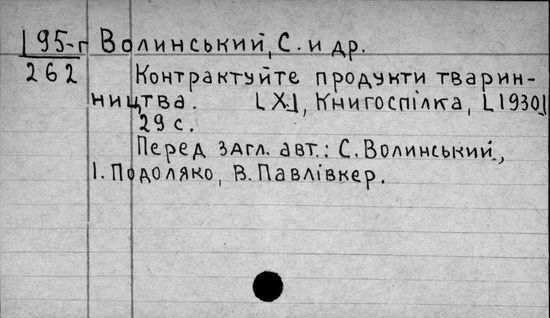 195-г Волинський, С. и др.
262 Контрактуйте продукти тварин-
ництва. [Х], Книгоспілка, [1930]
29 с.
Перед загл. авт.: С. Волинський,
І. Подоляко, В. Павлівкер.